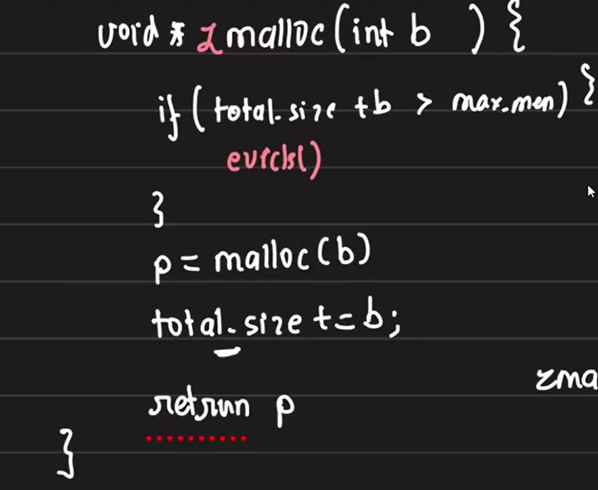 void * zmalloc(int b ) {
if (total_size +b > max.mem) {
evicts()
}
p = malloc(b)
total_size += b;
zma
retrun p
}